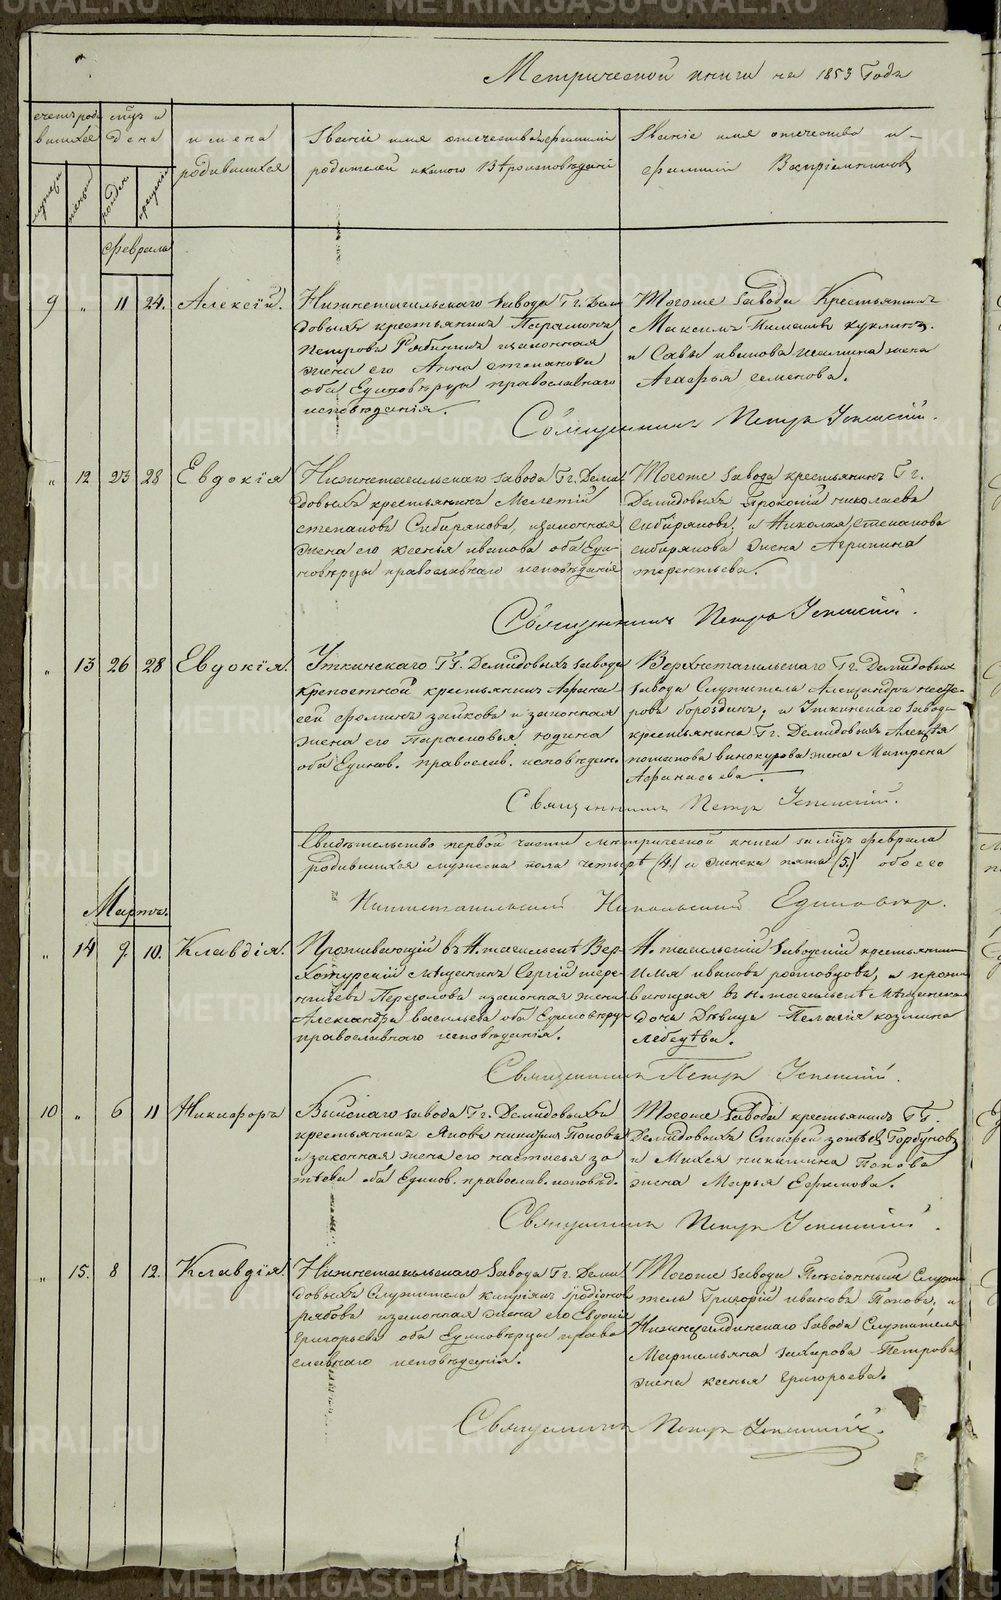 Метрической книги на 1853 Годъ
счетъ род мѣсяцъ и имена Званiе имя отечество и фамилiи Званiе имя отечество и
вшихся дена родившихся родителей и какого Вѣроисповѣданiя фамилiи Воспрiемниковъ
февраль
9 " 11 24. Алексѣй.
Нижнетагильскаго завода Гг. Деми
довыхъ крестьянинъ Парамонъ
Петровъ Рябининъ и законная
жена его Анна степанова
оба Единовѣрцы православнаго
исповѣданiя.
Тогоже завода Крестьянинъ
Максимъ
и Савы иванова жена
Агафья семенова.
Священникъ Петръ Успенскiй.
" 12 23 28 Евдокiя
Нижнетагильскаго завода Гг. Деми
довыхъ крестьянинъ Мелетiй
степановъ Сибиряковъ, и законная
жена его ксенья иванова оба Еди-
новѣрцы православнаго исповѣданiя
Тогоже завода крестьянинъ Гг.
Демидовыхъ Прокопiй николаевъ
сибиряковъ, и Николая степанова
сибирякова жена Агрипина
терентьева.
Священникъ Петръ Успенскiй.
" 13 26 28 Евдокiя.
Уткинскаго Гг. Демидовыхъ завода
крепостной крестьянинъ Афана
сей фоминъ зайковъ и законная
жена его Парасковья юдина
оба Единов. православ. исповѣдан.
Верхнетагильскаго Гг. Демидовыхъ
завода Служитель Александръ
бороздинъ, и Уткинскаго завода
крестьянина Гг. Демидовыхъ Алексѣя
потапова винокурова жена Матрена
Афанасьева.
Священникъ Петръ Успенскiй.
Свидѣтельство первой части метрической книги за мѣсяцъ февраль
родившихся мужеска пола четыре (4.) и женска пять (5.) обоего
Нижнетагильской Никольской Единовер.
Мартъ.
" 14 9. 10. Клавдiя.
Проживающiй въ Н. тагильскѣ Вер-
хотурскiй мѣщанинъ Сергiй тере-
нтьевъ и законная жена
Александра васильева оба Единовѣрцы
православнаго исповѣданiя.
Н. тагильскiй заводскiй крестьянинъ
Илья ивановъ ростовцовъ, и прожи
вающая въ Н. тагильскѣ Мѣщанская
дочь дѣвица Пелагiя козмина
Священникъ Петръ Успенскiй.
10 " 6 11 Никифоръ
Выйскаго завода Гг. Демидовыхъ
крестьянинъ Яковъ никитинъ Поповъ
и законная жена его настасья зо
тѣева оба Единов. православ. исповѣд.
Тогоже завода крестьянинъ ГГ.
Демидовыхъ зотѣевъ Горбуновъ
и никитина Попова
жена Марья Ефимова.
Священникъ Петръ Успенскiй.
" 15. 8 12. Клавдiя.
Нижнетагильскаго завода Гг. Деми
довыхъ Служитель кипрiянъ Iродiоновъ
рябовъ и законная жена его Евдокiя
григорьева оба Единовѣрцы право
славнаго исповѣданiя.
Тогоже завода Пенсiонный Служи
тель Григорiй ивановъ Поповъ, и
Нижнесалдинскаго завода Служителя
Мартемьяна захарова Петрова
жена ксенья григорьева.
Священникъ Петръ Успенскiй.
METRIKI.GASO-URAL.RU